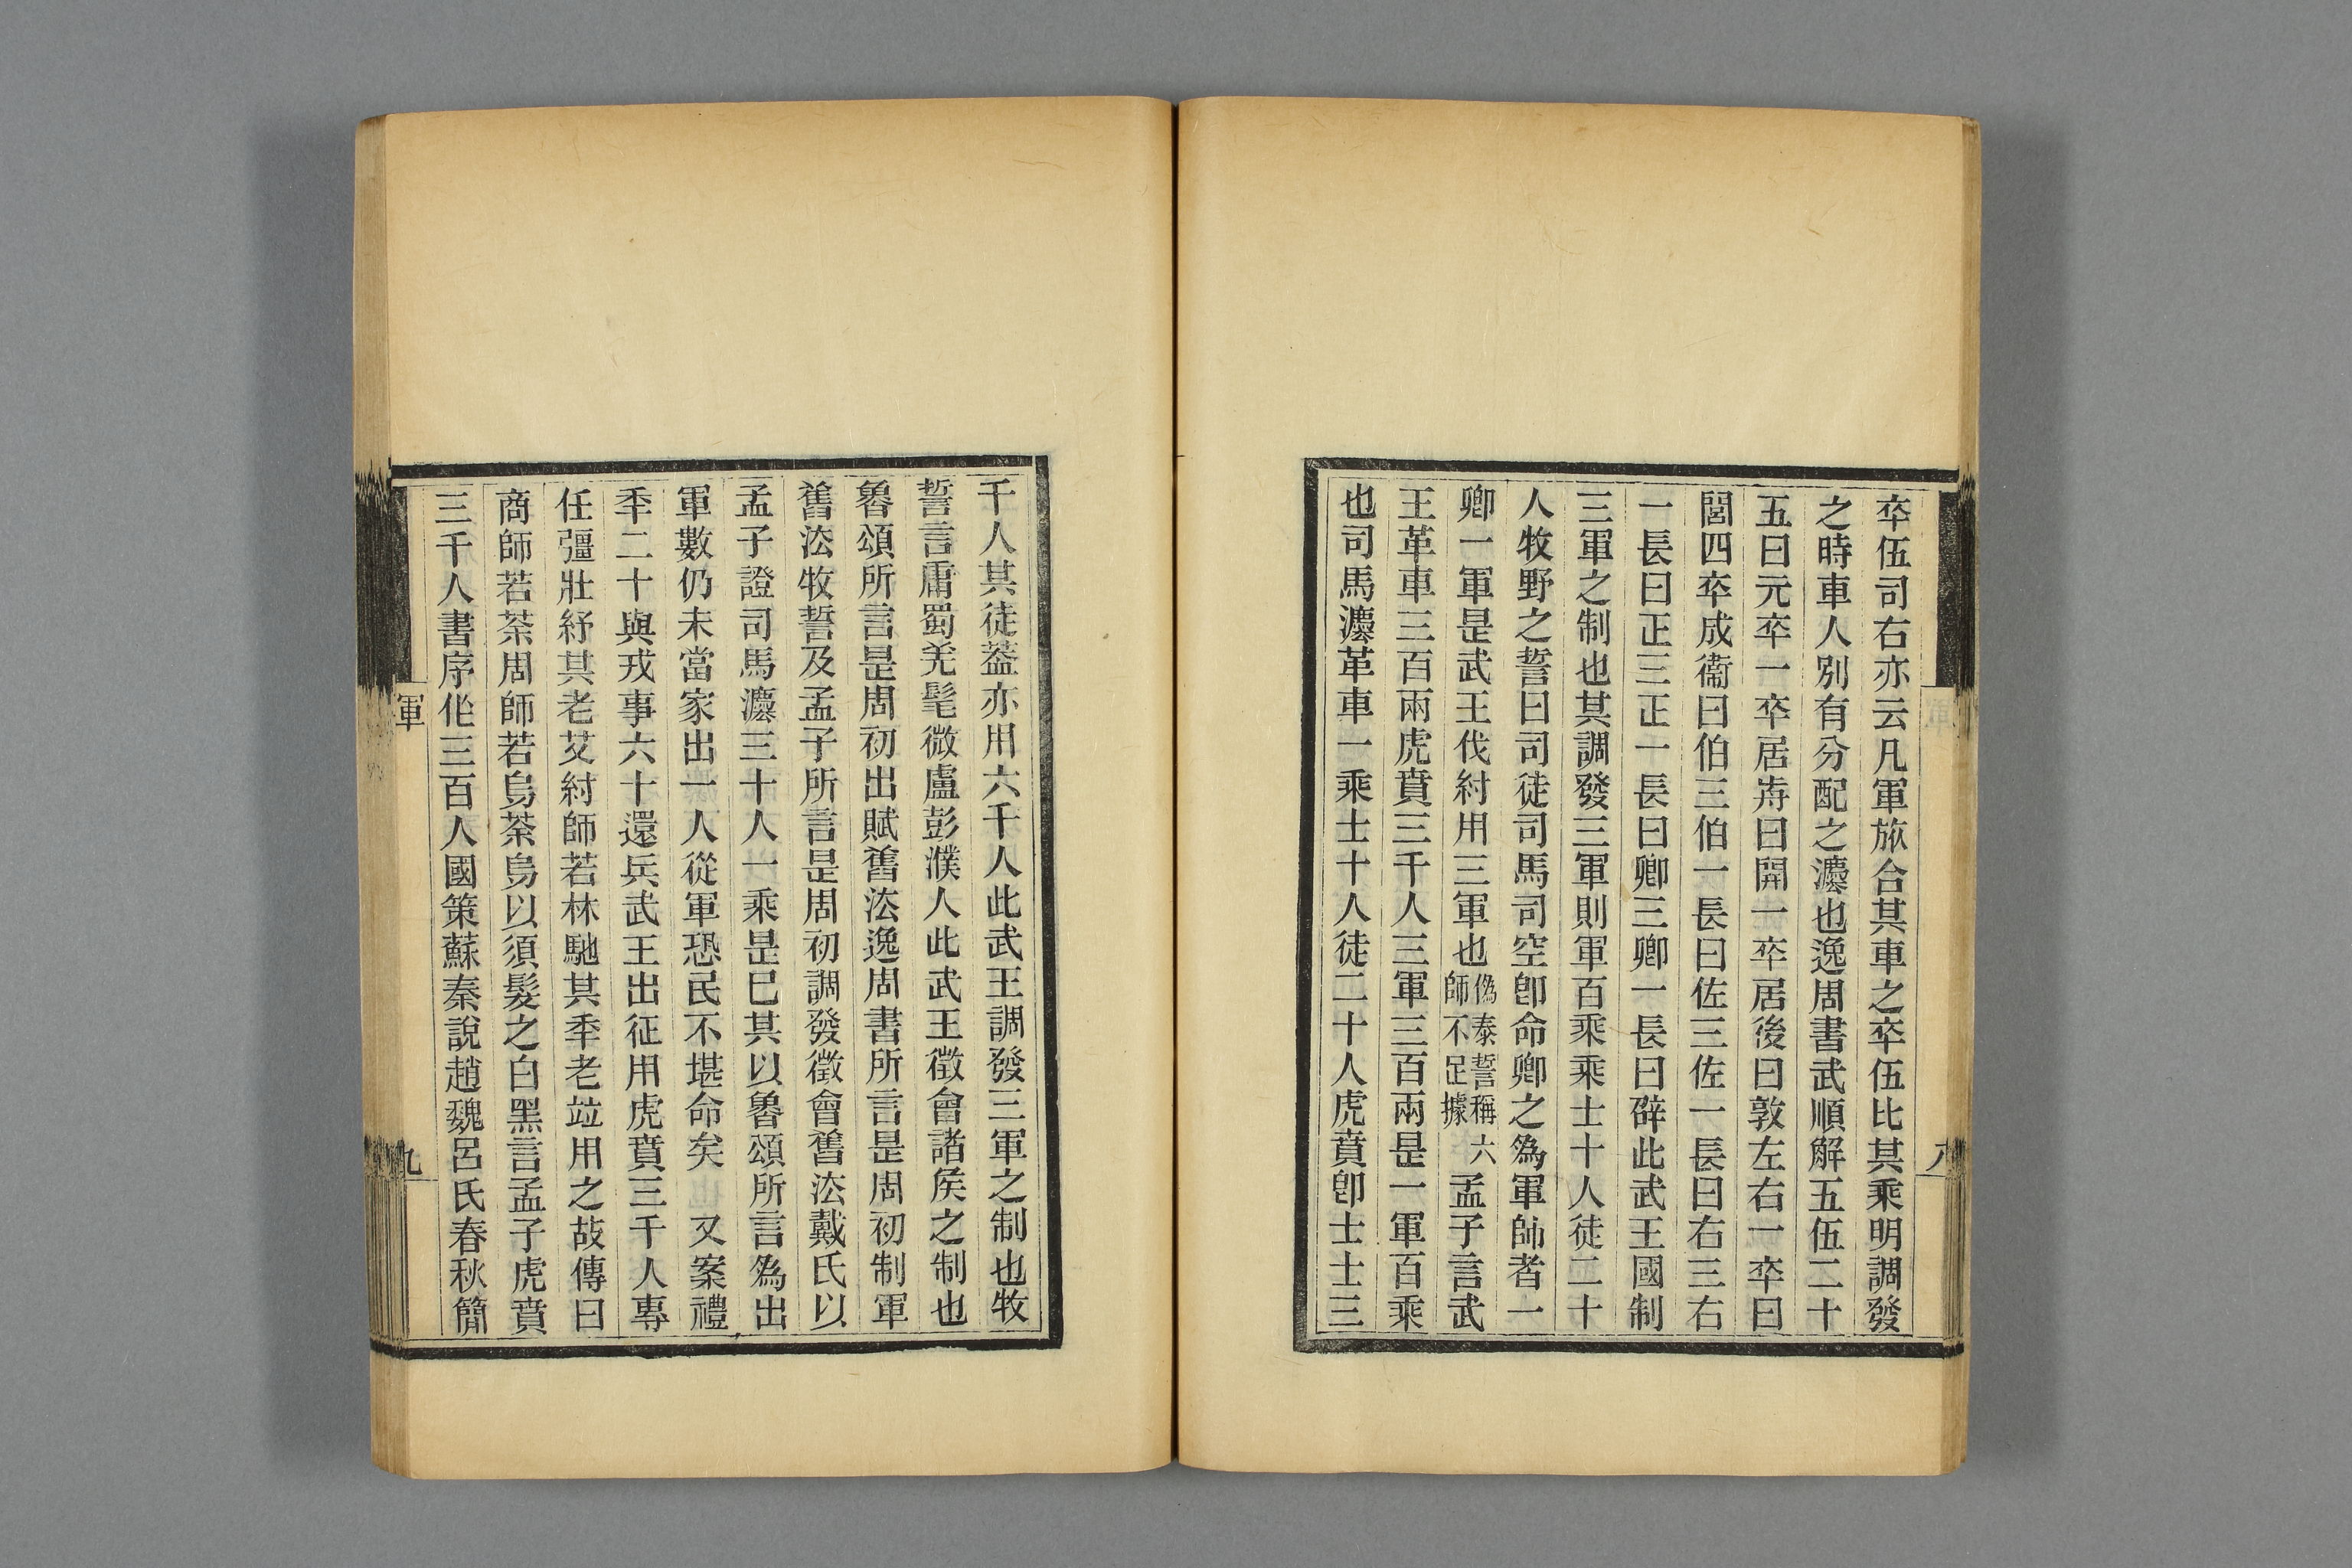 卒伍司右亦云凡軍旅合其車之卒伍比其乘明調發
之時車人別有分配之灋也逸周書武順解五伍二十
五曰元卒一卒居歬曰開一卒居後曰敦左右一卒曰
閭四卒成衞曰伯三伯一長曰佐三佐一長曰右三右
一長曰正三正一長曰卿三卿一長曰辟此武王國制
三軍之制也其調發三軍則軍百乘乘士十人徒二十
人牧野之誓曰司徒司馬司空卽命卿之爲軍帥者一
卿一軍是武王伐紂用三軍也僞泰誓稱六師不足據孟子言武
王革車三百兩虎賁三千人三軍三百兩是一軍百乘
也司馬灋革車一乘士十人徒二十人虎賁卽士士三
千人其徒葢亦用六千人此武王調發三軍之制也牧
誓言庸蜀羌髳微盧彭濮人此武王徵會諸矦之制也
魯頌所言是周初出賦舊法逸周書所言是周初制軍
舊法牧誓及孟子所言是周初調發徵會舊法戴氏以
孟子證司馬灋三十人一乘是巳其以魯頌所言爲出
軍數仍未當家出一人從軍恐民不堪命矣 又案禮
秊二十與戎事六十還兵武王出征用虎賁三千人專
任彊壯紓其老艾紂師若林馳其秊老竝用之故傳曰
商師若荼周師若烏荼烏以須髮之白黑言孟子虎賁
三千人書序作三百人國策蘇秦說趙魏呂氏春秋簡
軍
九